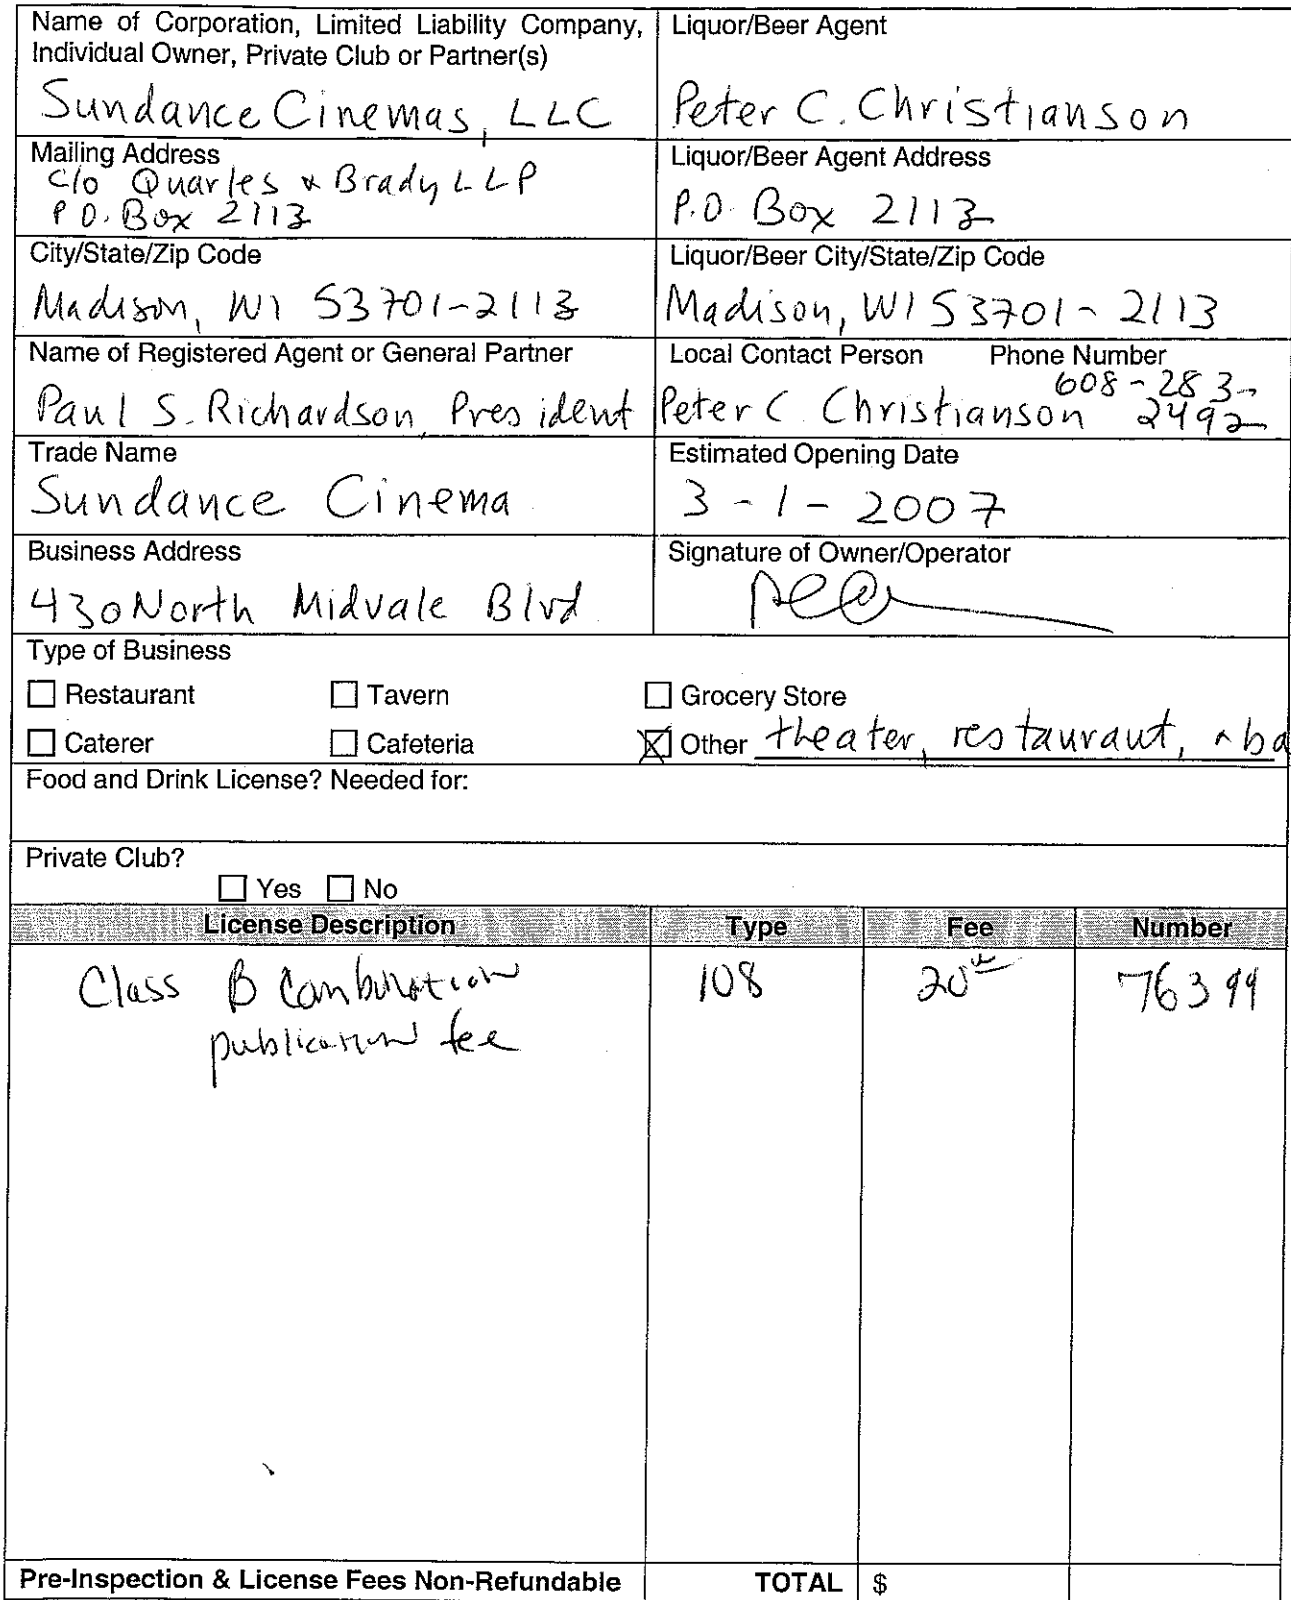 Name of Corporation, Limited Liability Company,
Individual Owner, Private Club or Partner(s)
Sundance Cinemas, LLC
Liquor/Beer Agent
Peter C. Christianson
Mailing Address
c/o Quarles & Brady LLP
P.O. Box 2113
Liquor/Beer Agent Address
P.O. Box 2113
City/State/Zip Code
Madison, WI 53701-2113
Liquor/Beer City/State/Zip Code
Madison, WI 53701-2113
Name of Registered Agent or General Partner
Paul S. Richardson, President
Local Contact Person Phone Number
608-283-
Peter C. Christianson 2492
Trade Name
Sundance Cinema
Estimated Opening Date
3-1-2007
Business Address
430 North Midvale Blvd.
Signature of Owner/Operator
Type of Business
Restaurant Tavern Grocery Store
Caterer Cafeteria Other theater, restaurant, & ba
Food and Drink License? Needed for:
Private Club?
Yes No
License Description Type Fee Number
Class B Combination 108 20 76399
publication fee
Pre-Inspection & License Fees Non-Refundable TOTAL $